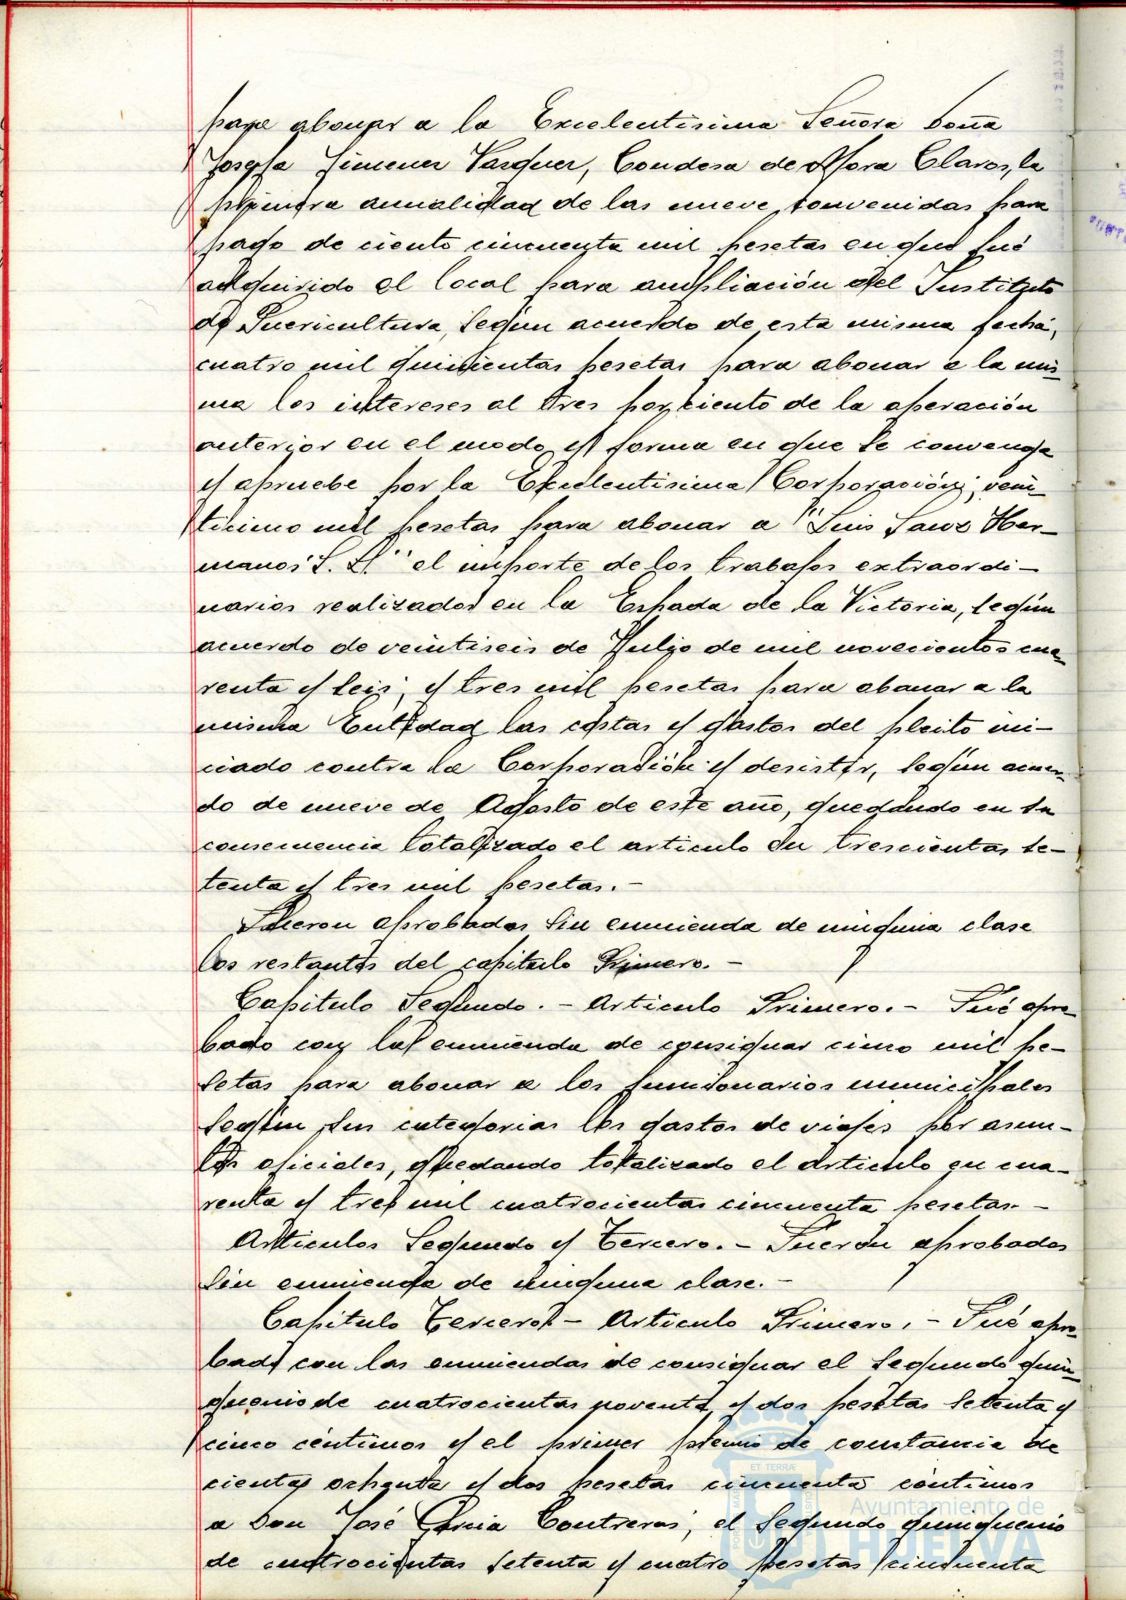 para abonar a la Excelentisima Señora Doña
Josefa Jimenez Vazquez, Condesa de Mora Claros, la
primera anualidad de las nueve convenidas para
pago de ciento cincuenta mil pesetas en que fué
adquirido el local para ampliación del Instituto
de Puericultura, según acuerdo de esta misma fecha;
cuatro mil quinientas pesetas para abonar a la mis-
ma los intereses al tres por ciento de la operación
anterior en el modo y forma en que se convenga
y apruebe por la Excelentisima Corporación; vein-
ticinco mil pesetas para abonar a "Luis Sanz Her-
manos S. L." el importe de los trabajos extraordi-
narios realizados en la Espada de la Victoria, según
acuerdo de veintiseis de Julio de mil novecientos cua-
renta y seis; y tres mil pesetas para abonar a la
misma Entidad las costas y gastos del pleito ini-
ciado contra la Corporación y desistir, según acuer-
do de nueve de Agosto de este año, quedando en su
consecuencia totalizado el articulo en trescientas se-
tenta y tres mil pesetas.-
Fueron aprobados sin enmienda de ninguna clase
los restantes del capitulo Primero.-
Capitulo Segundo.- Articulo Primero.- Fué apro-
bado con la enmienda de consignar cinco mil pe-
setas para abonar a los funcionarios municipales
según sus categorias los gastos de viajes por asun-
tos oficiales, quedando totalizado el articulo en cua-
renta y tres mil cuatrocientas cincuenta pesetas.-
Articulos Segundo y Tercero.- Fueron aprobados
sin enmienda de ninguna clase.-
Capitulo Tercero.- Articulo Primero.- Fué apro-
bado con las enmiendas de consignar el segundo quin-
quenio de cuatrocientas noventa y dos pesetas setenta y
cinco céntimos y el primer premio de constancia de
cientas ochenta y dos pesetas cincuenta céntimos
a Don José Garcia Contreras; el segundo quinquenio
de cuatrocientas setenta y cuatro pesetas cincuenta
Ayuntamiento de
HUELVA